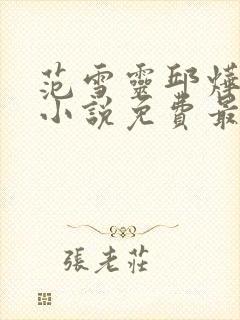 范雪靈邱燁
小說免費最
張老莊